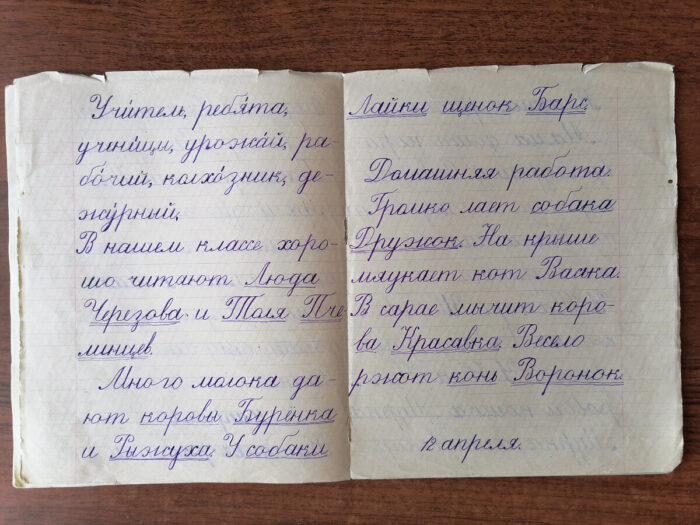 Учи́тель, ребя́та,
учени́цы, урожа́й, ра-
бо́чий, колхо́зник, де-
жу́рный,
В нашем классе хоро-
шо читают Люда
Черезова и Толя Пче-
линцев.
Много молока да-
ют коровы Бурёнка
и Рыжуха. У собаки
Лайки щенок Барс
Домашняя работа.
Громко лает собака
Дружок. На крыше
мяукает кот Васька.
В сарае мычит коро-
ва Красавка. Весело
ржот конь Воронок.
12 апреля.